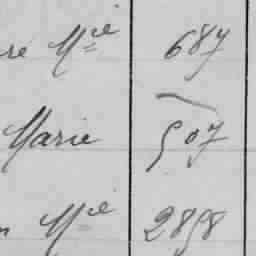 re Mie 687
Marie 507
n Mie 2858